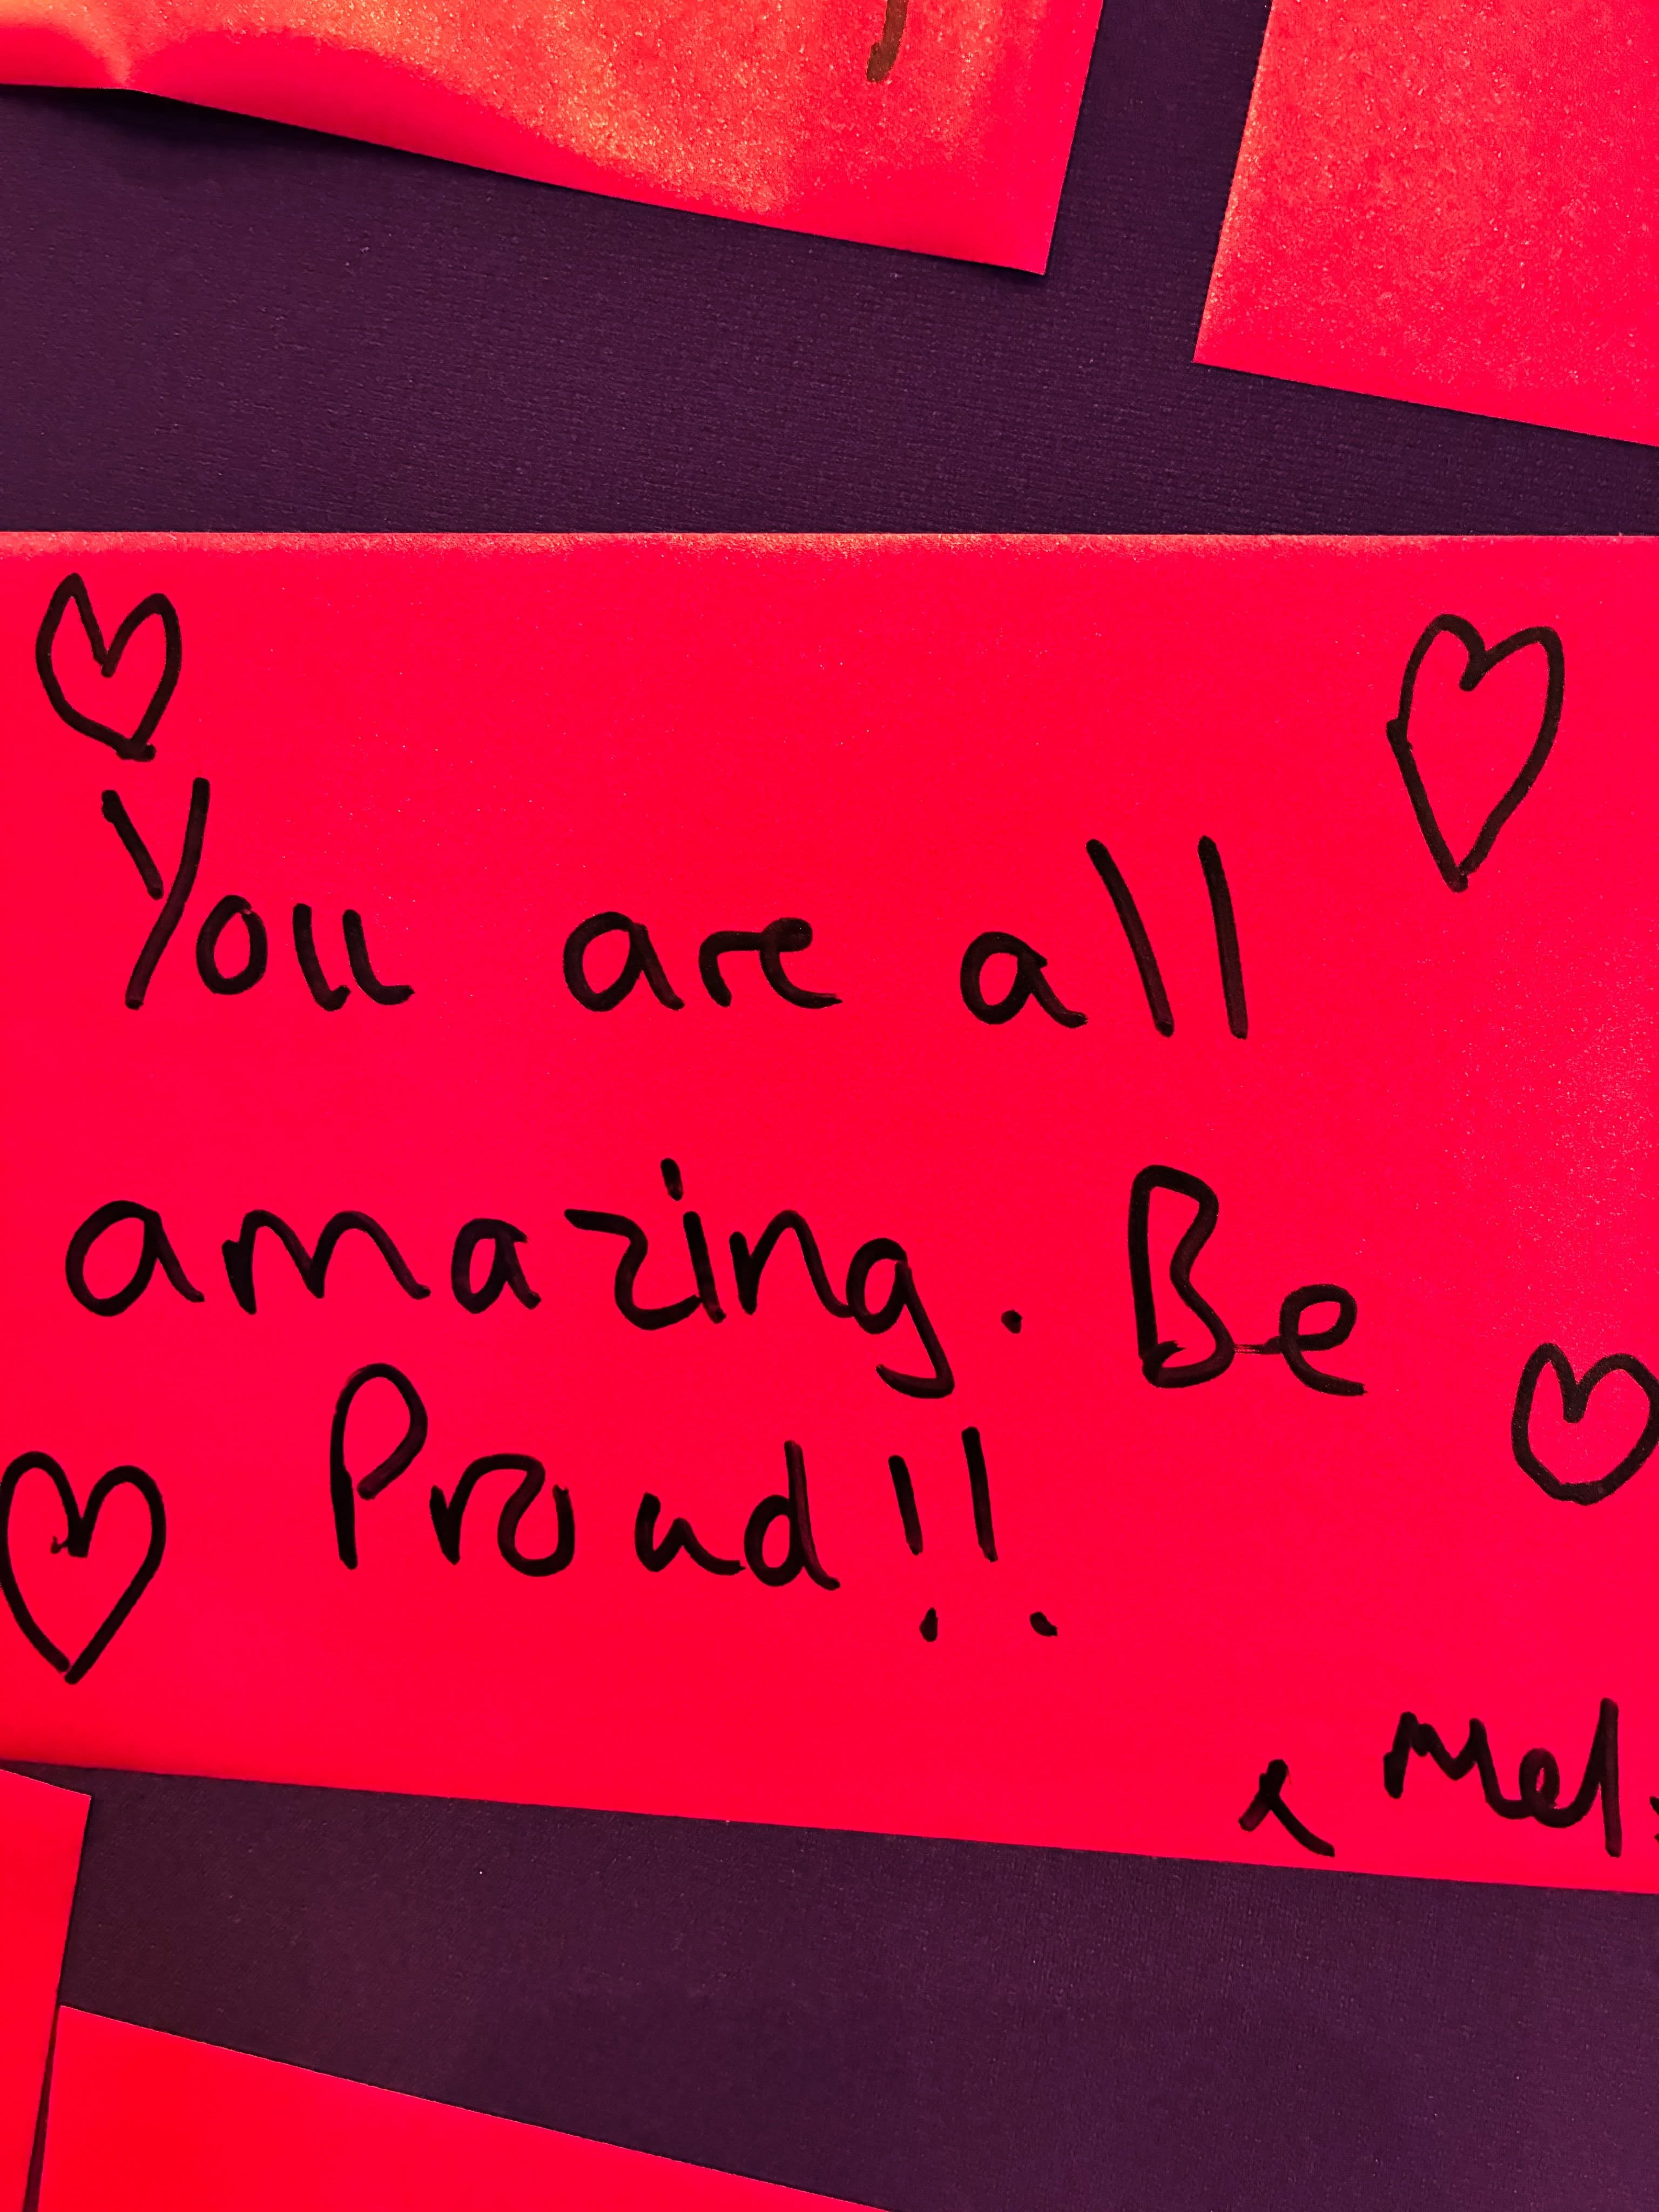 You are all
amazing. Be
Proud!!
x Mel